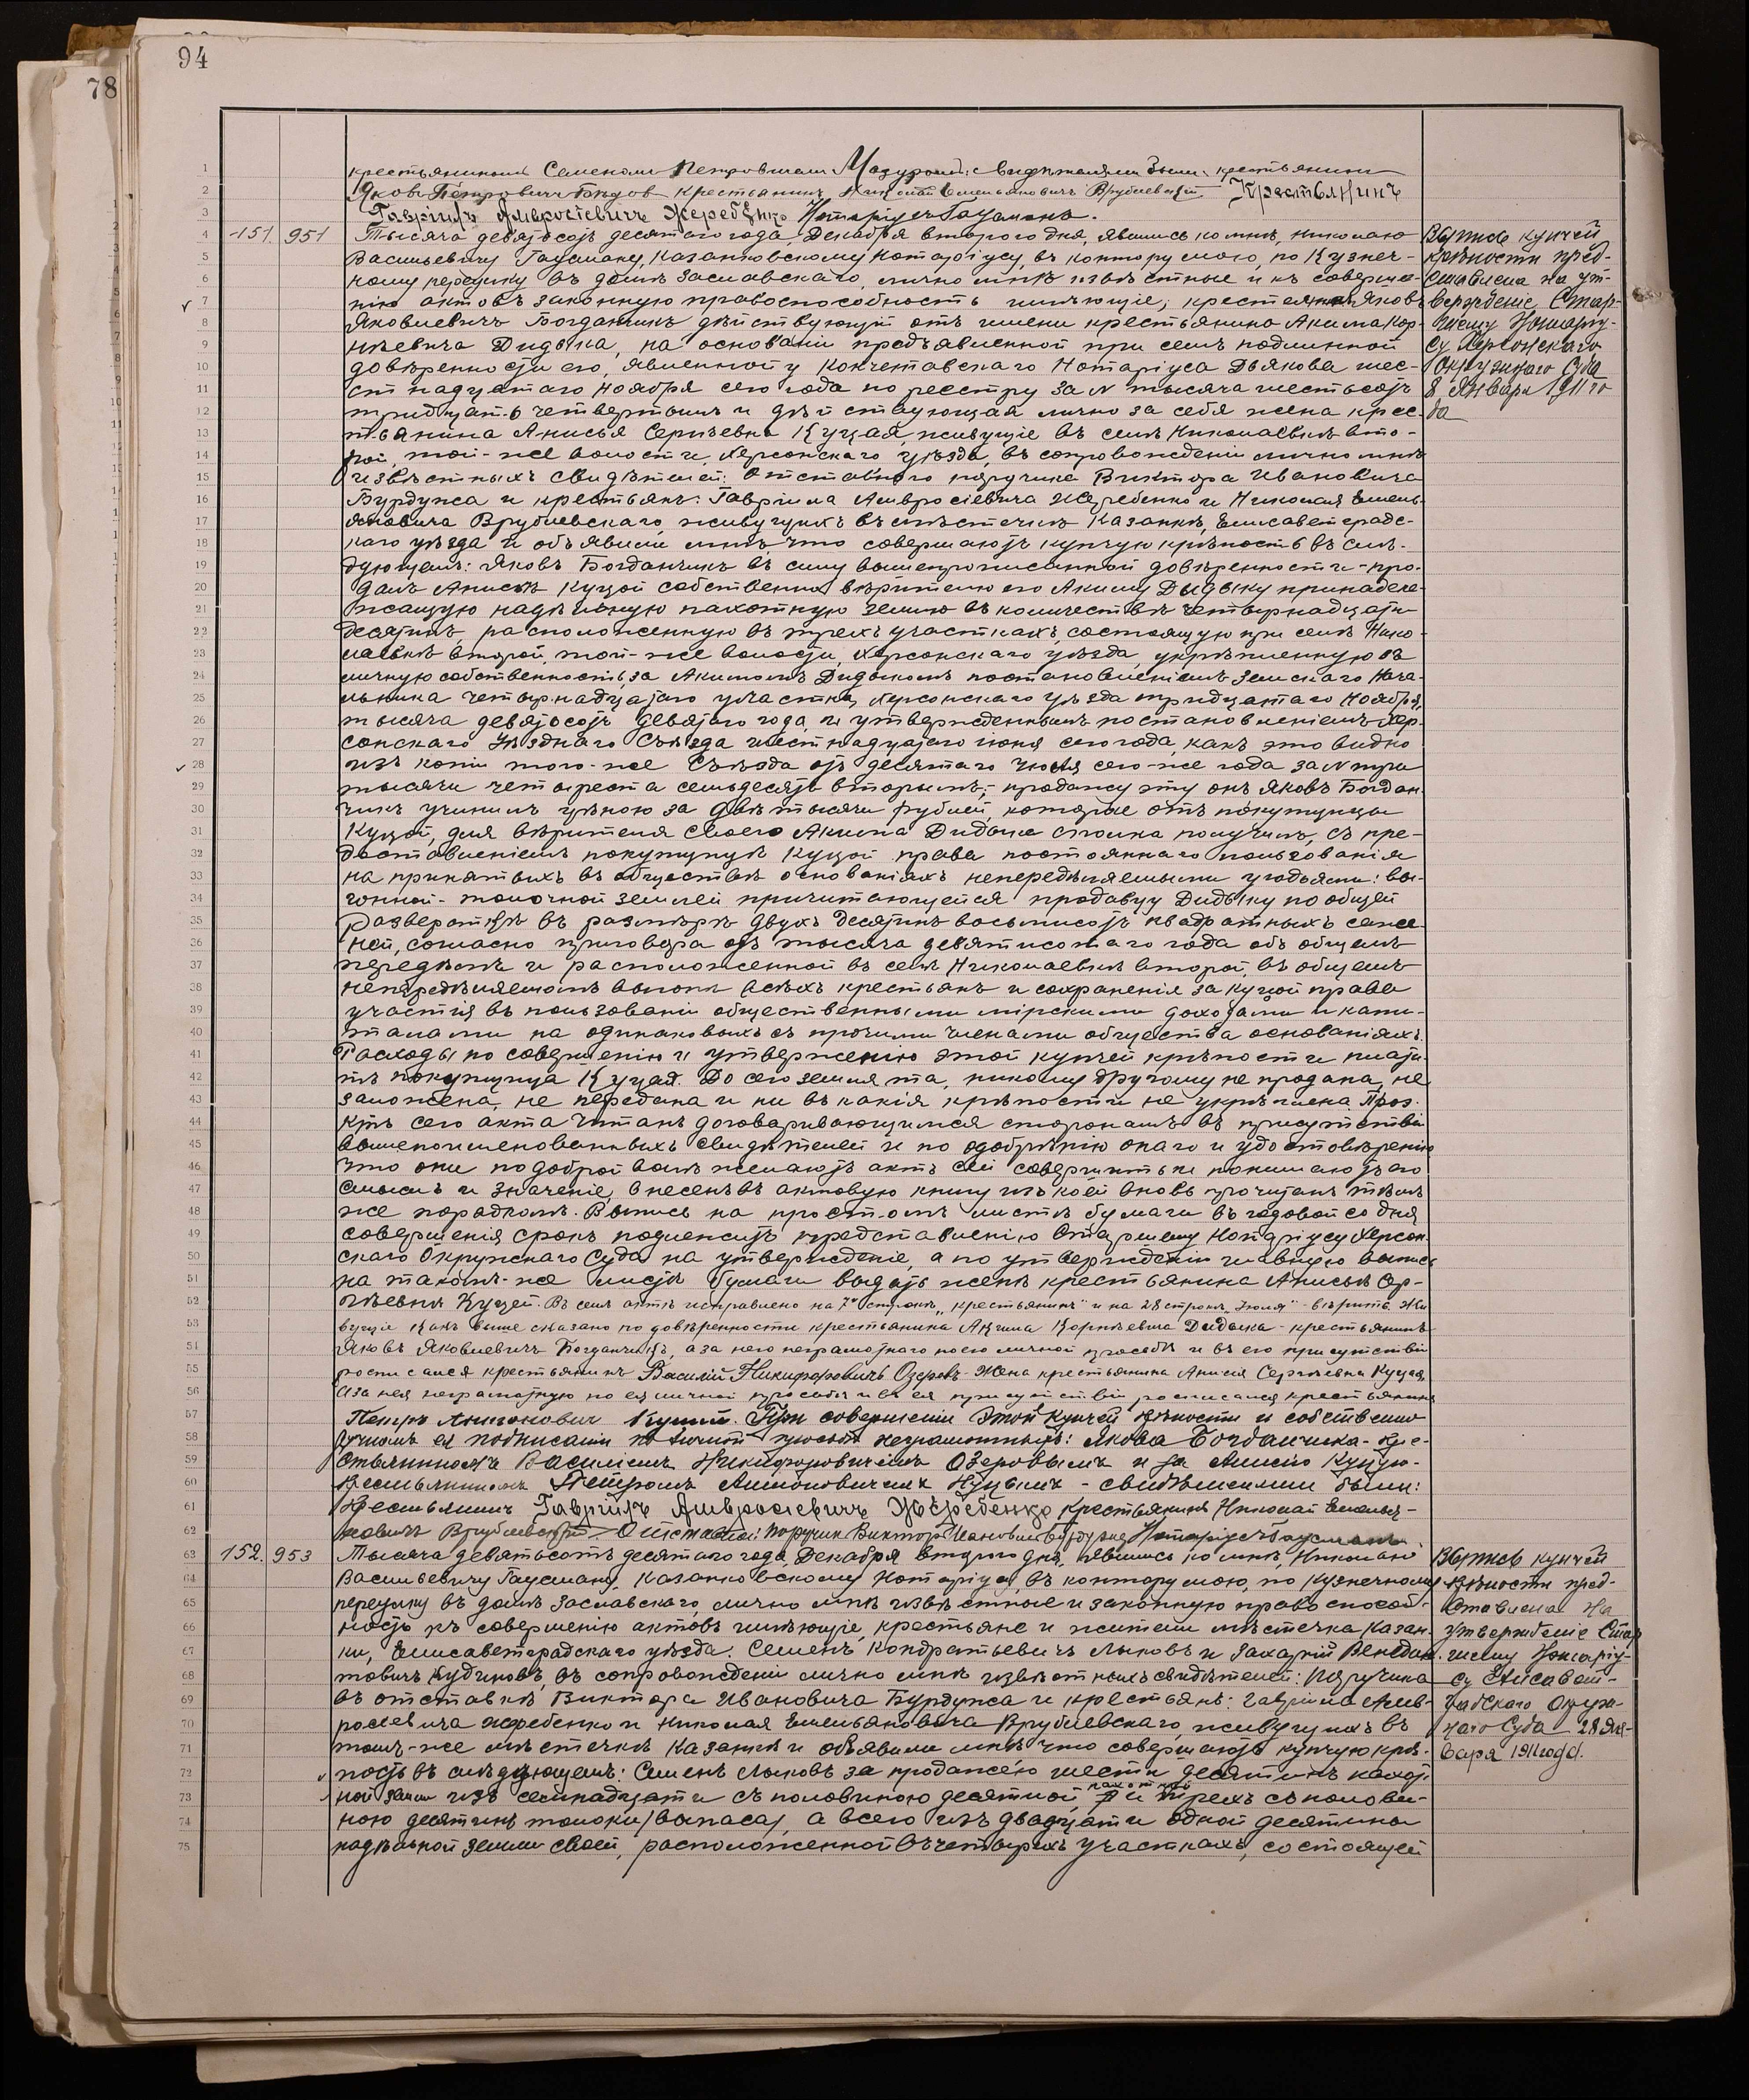 94
78
крестьяниномъ Семеномъ Петровичемъ Мазуромъ: свидѣтелями были: крестьянинъ
Яковъ Петровичъ Бѣдов крестьянинъ Николай Емельяновичъ Врублевскій Крестьянинъ
Гавріилъ Амвросіевичъ Жеребѣнко Нотаріусъ Гаусманъ.
151. 951 Тысяча девятьсотъ десятаго года, Декабря второго дня, явились ко мнѣ, Николаю
Васильевичу Гаусману, Казанковскому Нотаріусу, въ контору мою, по Кузнеч-
ному переулку въ домѣ Заславскаго, лично мнѣ извѣстные и къ соверше-
нію актовъ законную правоспособность имѣющіе, крестьянинъ Яковъ
Яковлевичъ Богданчикъ дѣйствующій отъ имени крестьянина Акима Кор-
нѣевича Дидыка, на основаніи предъявленной при семъ подлинной
довѣренности его, явленной у Кочетавскаго Нотаріуса Дьякова шес-
стнадцатаго ноября сего года по реестру за № тысяча шестьсотъ
тридцать четвертымъ и дѣйствующая лично за себя жена крес-
тьянина Анисья Сергѣевна Куцая, живущіе въ селѣ Николаевкѣ вто-
рой, той-же волости, Херсонскаго уѣзда, въ сопровожденіи лично мнѣ
извѣстныхъ свидѣтелей: Отставного поручика Виктора Ивановича
Бурдужа и крестьянъ: Гавріила Амвросіевича Жеребенко и Николая Емель-
яновича Врублевскаго, живущихъ въ мѣстечкѣ Казанкѣ, Елисаветградс-
каго уѣзда и объявили мнѣ что совершаютъ купчую крѣпость въ слѣ-
дующемъ: Яковъ Богданчикъ въ силу вышепрописанной довѣренности - про-
далъ Анисьѣ Куцой собственно вѣрителю его Акиму Дидыку принадле-
жащую надѣльную пахотную землю въ количествѣ четырнадцати
десятинъ, расположенную въ трехъ участкахъ, состоящую при селѣ Нико-
лаевкѣ второй, той-же волости, Херсонскаго уѣзда, укрѣпленную въ
личную собственность за Акимомъ Дидыкомъ постановленіемъ Земскаго Нача-
льника четырнадцатаго участка, Херсонскаго уѣзда тридцатаго Ноября,
тысяча девятьсотъ девятаго года, и утвержденнымъ постановленіемъ Хер-
сонскаго Уѣзднаго Съѣзда шестнадцатаго іюня сего года, какъ это видно
изъ копіи того-же Съѣзда отъ десятаго Іюля сего-же года за № три
тысячи четыреста семьдесятъ вторымъ; - продажу эту онъ Яковъ Богдан-
чикъ учинилъ цѣною за двѣ тысячи рублей, которые отъ покупщицы
Куцой, для вѣрителя своего Акима Дидыка сполна получилъ, съ пре-
доставленіемъ покупщицѣ Куцой права постояннаго пользованія
на принятыхъ въ обществѣ основаніяхъ непередѣляемыми угодьями: вы-
гонной-толочной землей причитающейся продавцу Дидыку по общей
разверсткѣ въ размѣрѣ двухъ десятинъ восьмисотъ квадратныхъ саже-
ней, согласно приговора отъ тысяча девятисотаго года объ общемъ
передѣлѣ и расположенной въ селѣ Николаевкѣ второй, въ общемъ
непередѣляемомъ выгонѣ всѣхъ крестьянъ и сохраненія за Куцой права
участія въ пользованіи общественными мірскими доходами и капи-
талами на одинаковыхъ съ прочими членами общества основаніяхъ.
Расходы по совершенію и утвержденію этой купчей крѣпости плати-
тъ покупщица Куцая. До сего земля та, никому другому не продана, не
заложена, не передана и ни въ какія крѣпости не укрѣплена. Прое-
ктъ сего акта читанъ договаривающимся сторонамъ въ присутствіи
вышепоименованныхъ свидѣтелей и по одобренію онаго и удостовѣренію
что они по доброй волѣ желаютъ актъ сей совершить и понимаютъ его
смыслъ и значеніе, внесенъ въ актовую книгу изъ коей вновь прочитанъ тѣмъ
же порядкомъ. Выпись на простомъ листѣ бумаги въ годовой со дня
совершенія срокъ подлежитъ представленію Старшему Нотаріусу Херсон-
скаго Окружнаго Суда на утвержденіе, а по утвержденіи главную выпись
на такомъ-же листѣ бумаги выдать женѣ крестьянина Анисьѣ Сер-
гѣевнѣ Куцой. Въ семъ актѣ исправлено на 7й строкѣ „крестьянинъ" и на 28 строкѣ „Іюля" - вѣрить. Жи-
вущіе какъ выше сказано по довѣренности крестьянина Акима Корнѣевича Дидыка - крестьянинъ
Яковъ Яковлевичъ Богданчикъ, а за него неграмотнаго по его личной просьбѣ и въ его присутствіи
росписался крестьянинъ Василій Никифоровичъ Озеровъ - Жена крестьянина Анисія Сергѣевна Куцая,
А за нея неграмотную по ея личной просьбѣ и въ ея присутствіи росписался крестьянинъ
Петръ Антоновичъ Куцый. При совершеніи этой купчей крѣпости и собственно
ручномъ ея подписаніи по личной просьбѣ неграмотныхъ: Якова Богданчика - кре-
стьяниномъ Василіемъ Никифоровичемъ Озеровымъ и за Анисію Куцую -
крестьяниномъ Петромъ Антоновичемъ Куцымъ - свидѣтелями были:
Крестьянинъ Гавріилъ Амвросіевичъ Жеребенко крестьянинъ Николай Емелья-
новичъ Врублевскій Отставной Поручик Викторъ Ивановичъ Бурдужа Нотаріусъ Гаусманъ
Выпись купчей
крѣпости пред-
ставлена на ут-
вержденіе Стар-
шему Нотаріу-
су Херсонскаго
Окружнаго Суда
8 Января 1911 го
да
152. 953 Тысяча девятьсотъ десятаго года, Декабря второго дня, явились ко мнѣ, Николаю
Васильевичу Гаусману, Казанковскому Нотаріусу, въ контору мою, по Кузнечному
переулку въ домѣ Заславскаго, лично мнѣ извѣстные и законную правоспособ-
ность къ совершенію актовъ имѣющіе, крестьяне и жители мѣстечка Казан-
ки, Елисаветградскаго уѣзда: Семенъ Кондратьевичъ Лыковъ и Захарій Венедик-
товичъ Кудиновъ, въ сопровожденіи лично мнѣ извѣстныхъ свидѣтелей: Поручика
въ отставкѣ Виктора Ивановича Бурдужа и крестьянъ: Гавріила Амв-
росіевича Жеребенко и Николая Емельяновича Врублевскаго, живущихъ въ
томъ-же мѣстечкѣ Казанкѣ и объявили мнѣ что совершаютъ купчую крѣ-
пость въ слѣдующемъ: Семенъ Лыковъ за продажею шести десятинъ пахот
ной земли изъ семнадцати съ половиною десятинъ пахотной и трехъ съ полови-
ною десятинъ толоки (выпаса), а всего изъ двадцати одной десятины
надѣльной земли своей, расположенной въ четырехъ участкахъ, состоящей
Выпись купчей
крѣпости пред-
ставлена на
утвержденіе Стар
шему Нотаріу-
су Елисавет-
градскаго Окруж-
наго Суда 28 Ян-
варя 1911 года.